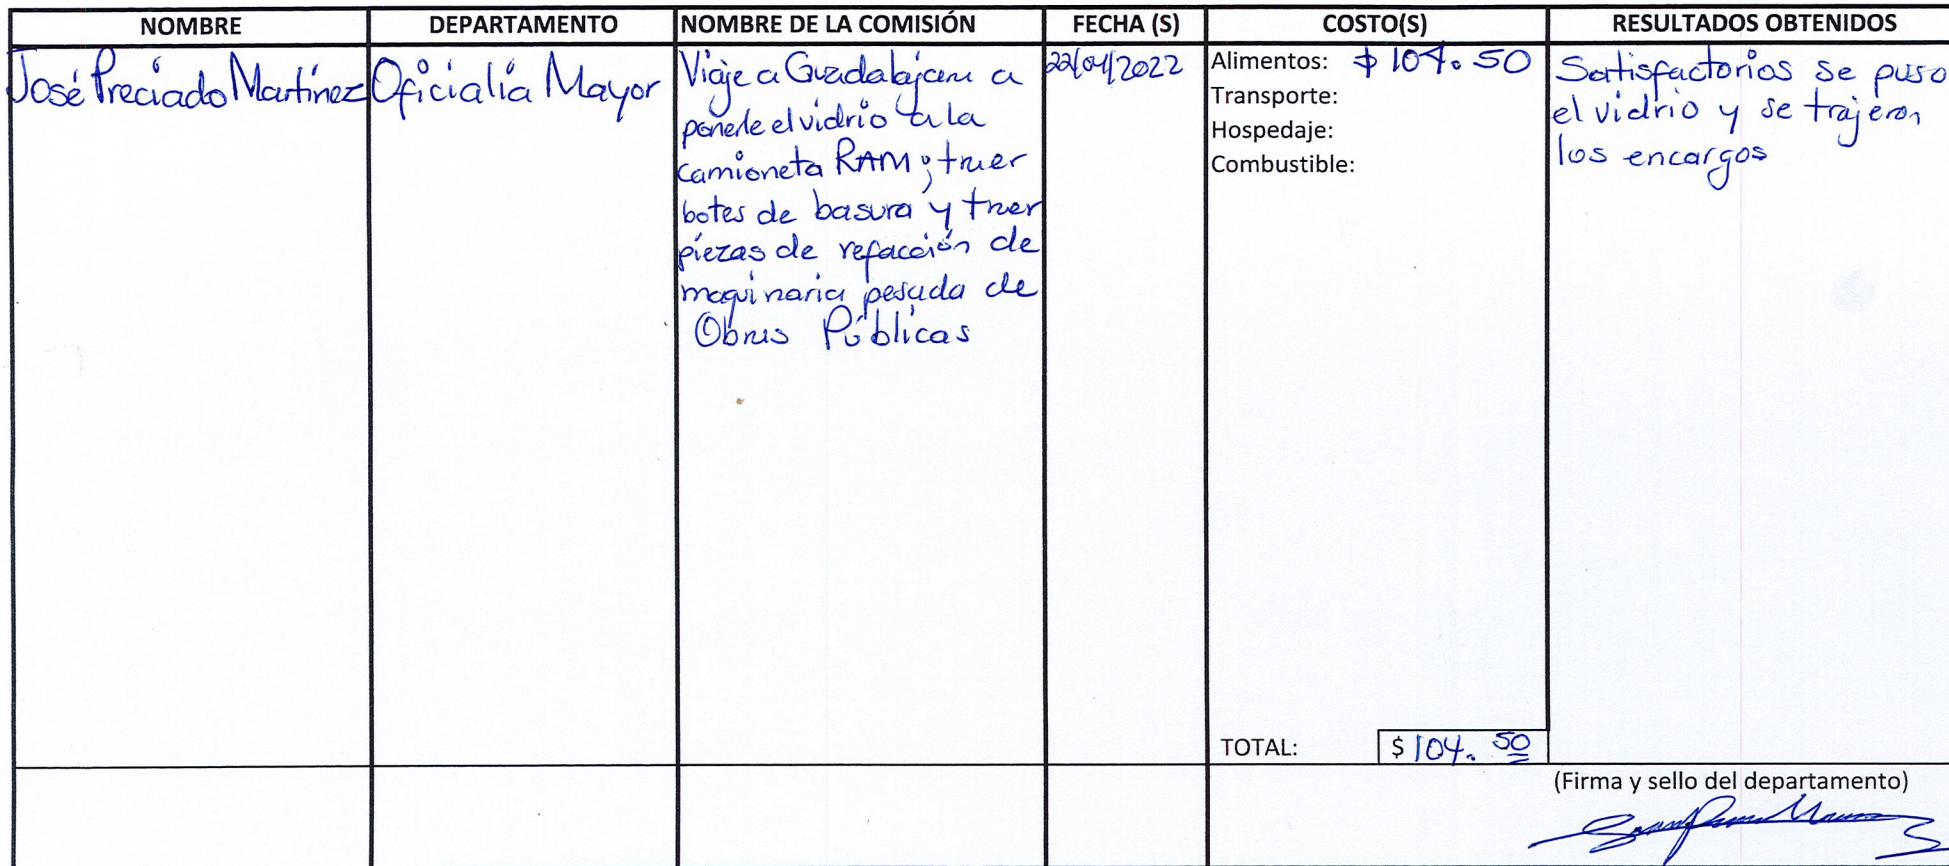 NOMBRE DEPARTAMENTO NOMBRE DE LA COMISIÓN FECHA (S) COSTO(S) RESULTADOS OBTENIDOS
José Preciado Martínez
Oficialía Mayor
Viaje a Guadalajara a
ponerle el vidrio a la
camioneta RAM; traer
botes de basura y traer
piezas de refacción de
maquinaria pesada de
Obras Públicas
22/04/2022
Alimentos: $ 104.50
Transporte:
Hospedaje:
Combustible:
TOTAL: $ 104.50
Satisfactorios se puso
el vidrio y se trajeron
los encargos
(Firma y sello del departamento)